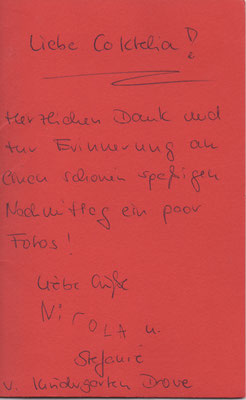 Liebe Coktelia!
Herzlichen Dank und
zur Erinnerung an
einen schönen spaßigen
Nachmittag ein paar
Fotos!
Liebe Grüße
Nicola u.
Stefanie
v. Kindergarten Drove